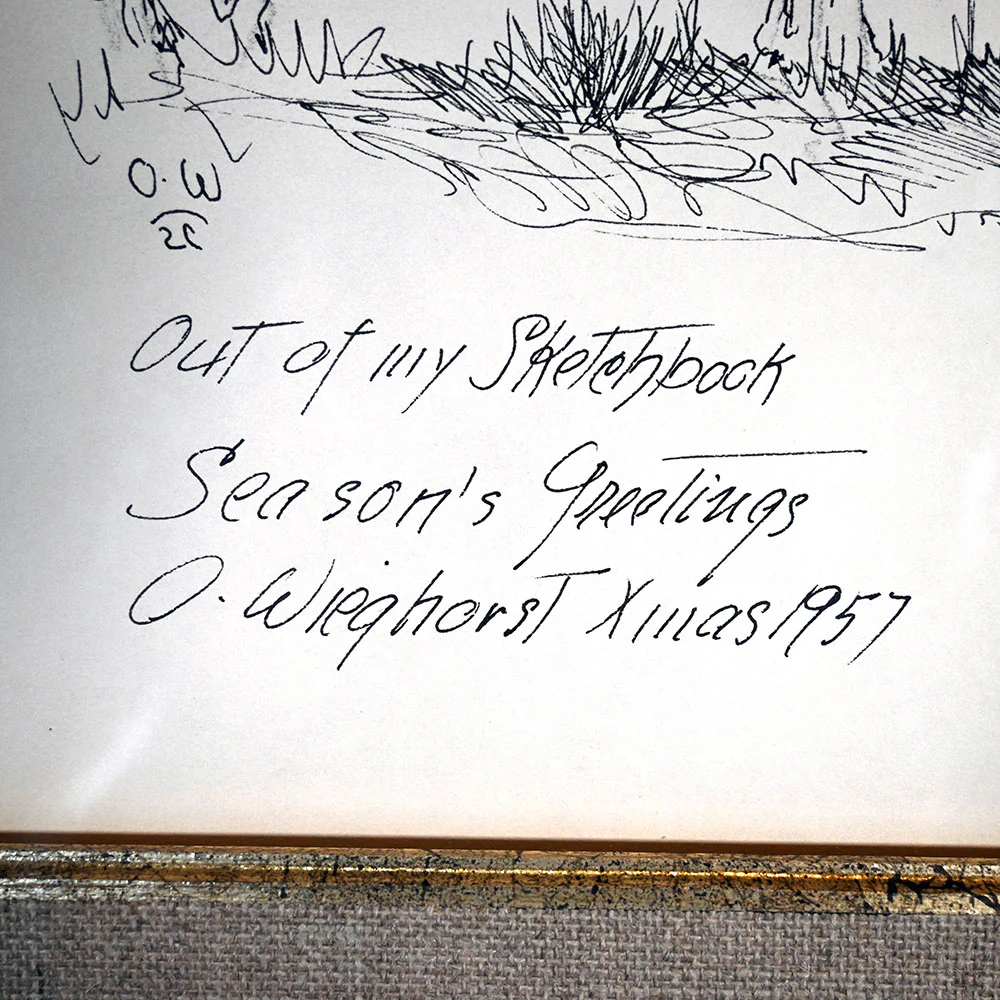 O. W
Out of my Sketchbook
Season's Greetings
O. Wieghorst Xmas 1957